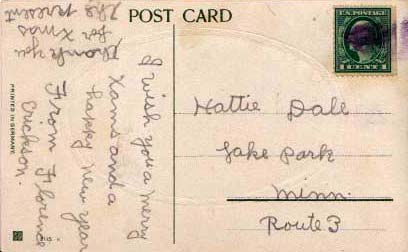 POST CARD
U.S. POSTAGE
1 CENT 1
I wish you a merry
Xams and a
happy New year
From Florence
Erickson.
Thank you
for Xmas
the present
Hattie Dale
Lake Park
Minn.
Route 3
PRINTED IN GERMANY